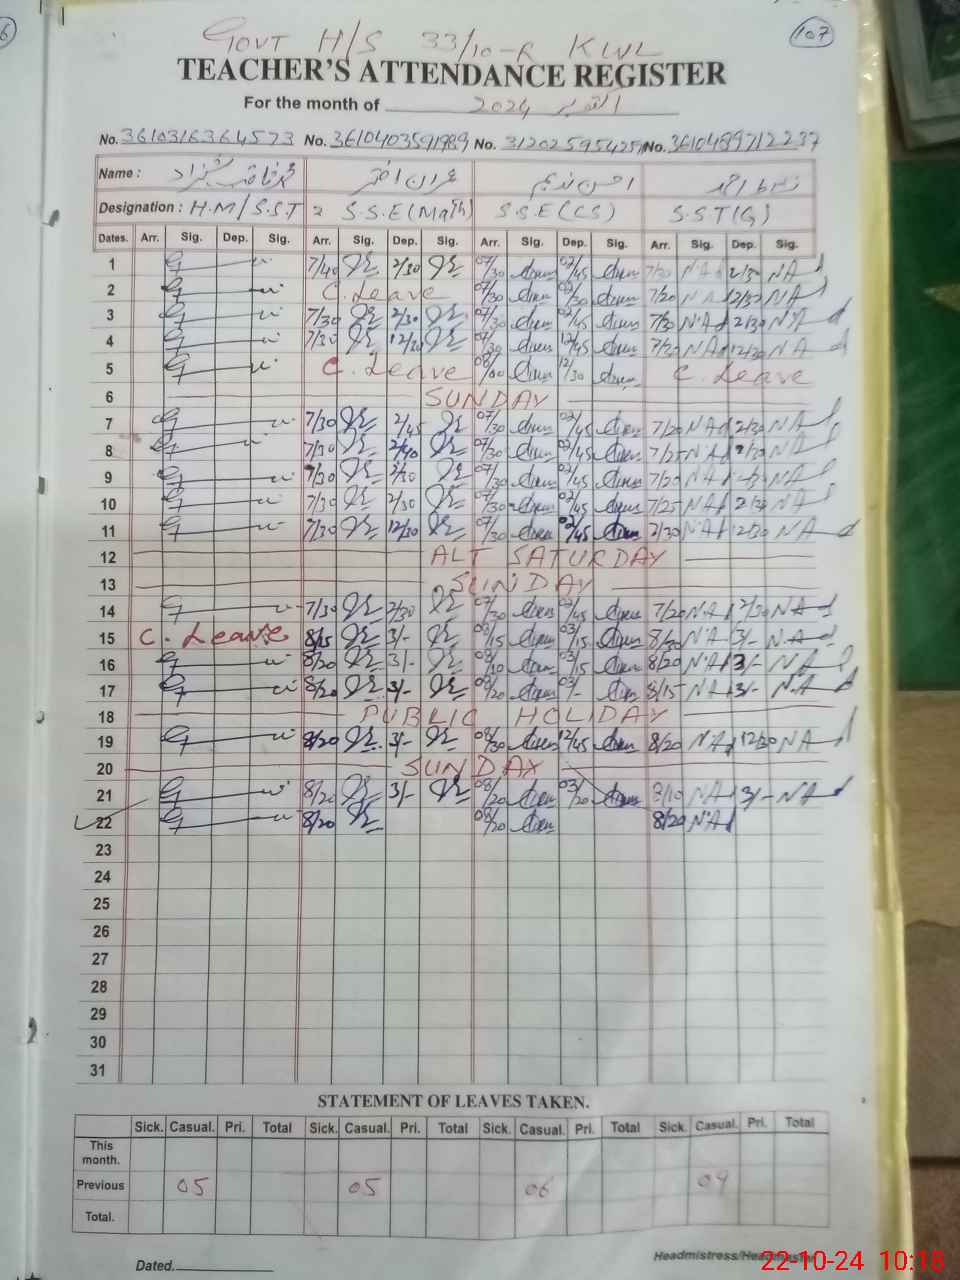 107
GOVT H/S 33/10-R KWL
TEACHER'S ATTENDANCE REGISTER
For the month of اکتوبر 2024
No. 3610316364573 No. 3610403591989 No. 31202595425 No. 3610489712237
Name : عمران اختر احسن ندیم
Designation : H.M/S.S.T S.S.E(Math) S.S.E(CS) S.ST(G)
Dates. Arr. Sig. Dep. Sig. Arr. Sig. Dep. Sig. Arr. Sig. Dep. Sig. Arr. Sig. Dep. Sig.
1 7/40 2/30 07/30 02/45 7/20 NA 2/30 NA
2 C. Leave 07/30 02/30 7/20 NA 2/30 NA
3 7/30 2/30 07/30 02/45 7/30 NA 2/30 NA
4 7/30 12/30 07/30 12/45 7/20 NA 12/30 NA
5 C. Leave 08/00 12/30 C. Leave
6 SUNDAY
7 7/30 2/45 07/30 02/45 7/20 NA 2/30 NA
8 7/30 2/40 07/30 02/45 7/25 NA 2/30 NA
9 7/30 2/30 07/30 02/45 7/20 NA NA
10 7/30 2/30 07/30 02/45 7/25 NA 2/30 NA
11 7/30 12/30 07/30 02/45 7/30 NA 12/30 NA
12 ALT SATURDAY
13 SUNDAY
14 7/30 2/30 07/30 02/45 7/20 NA 2/30 NA
15 C. Leave 8/15 3/- 08/15 03/15 8/20 NA 3/- NA
16 8/20 3/- 03/15 8/20 NA 3/- NA
17 8/20 3/- 08/20 03/- 8/15 NA 3/- NA
18 PUBLIC HOLIDAY
19 8/20 3/- 08/30 12/45 8/20 NA 12/30 NA
20 SUNDAY
21 8/20 3/- 08/20 03/20 8/10 NA 3/- NA
22 8/20 08/20 8/20 NA
23
24
25
26
27
28
29
30
31
STATEMENT OF LEAVES TAKEN.
Sick. Casual. Pri. Total Sick. Casual. Pri. Total Sick. Casual. Pri. Total Sick. Casual. Pri. Total
This month.
Previous 05 05 06 04
Total.
Dated. Headmistress/Headmaster
22-10-24 10:18